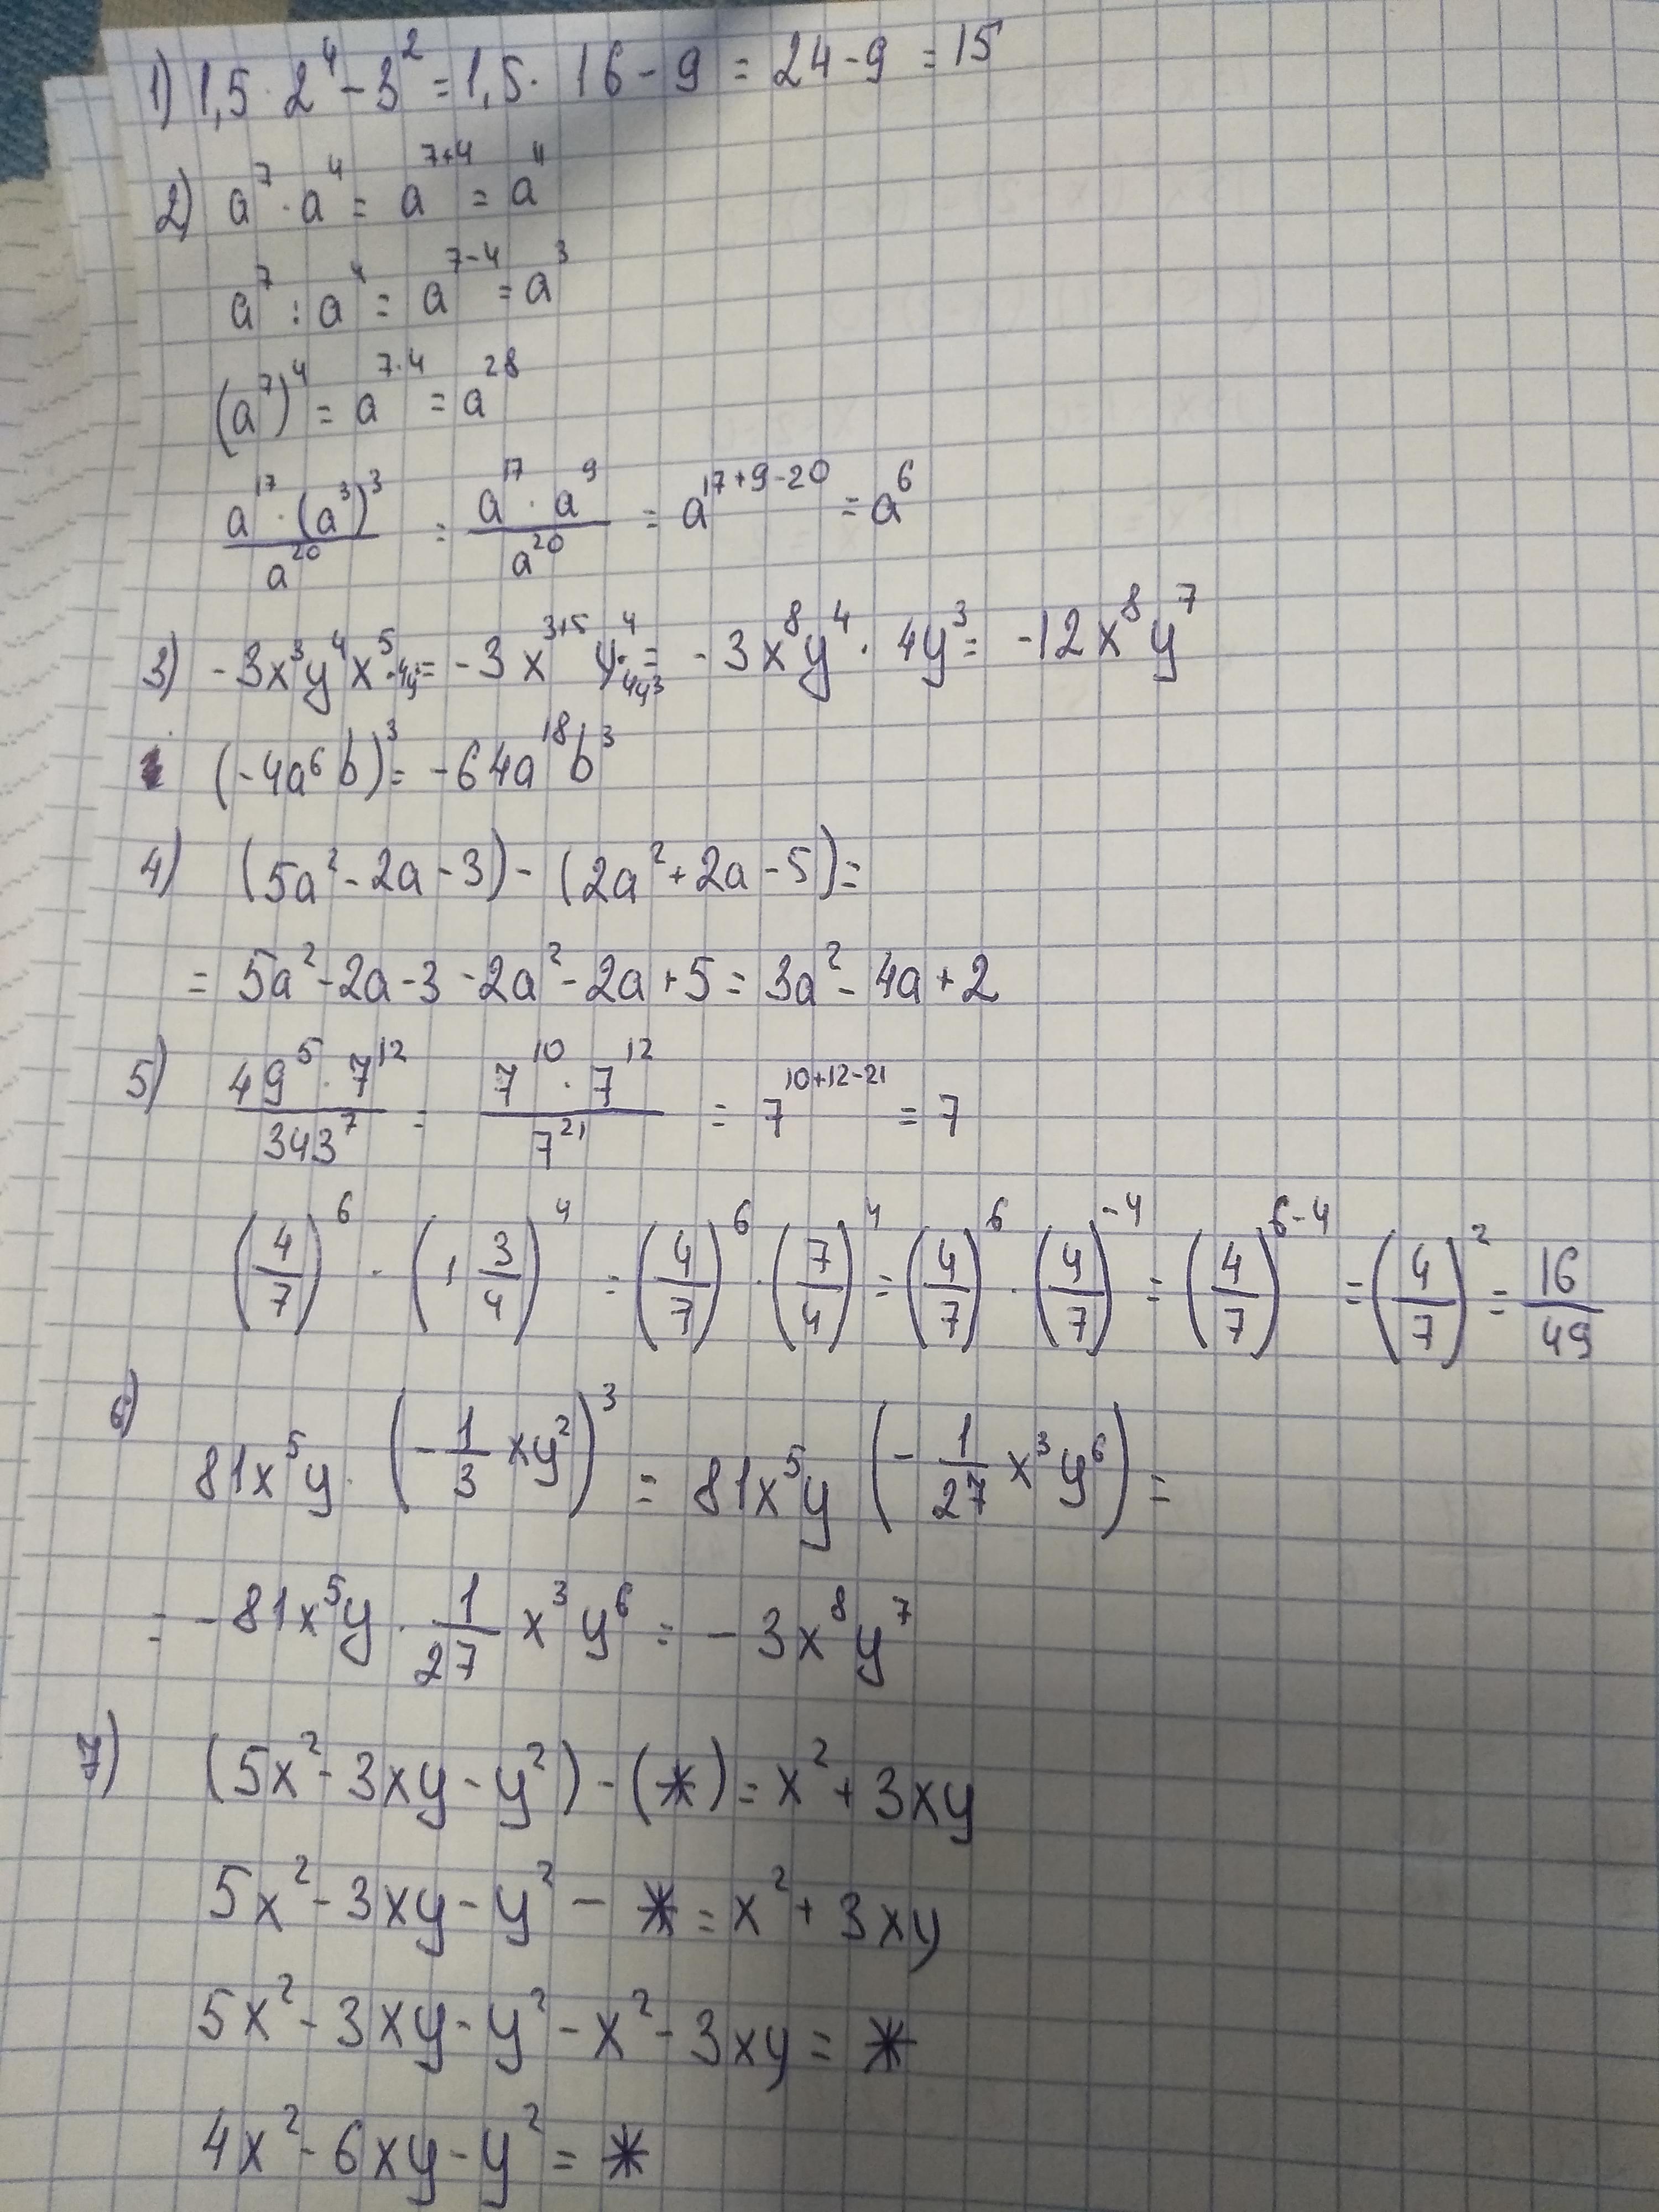 1) 1,5 · 2⁴ - 3² = 1,5 · 16 - 9 = 24 - 9 = 15
2) a⁷ · a⁴ = a⁷⁺⁴ = a¹¹
a⁷ : a⁴ = a⁷⁻⁴ = a³
(a⁷)⁴ = a^(7·4) = a²⁸
(a¹⁷ · (a³)³)/a²⁰ = (a¹⁷ · a⁹)/a²⁰ = a¹⁷⁺⁹⁻²⁰ = a⁶
3) -3x³y⁴x⁵ · 4y³ = -3x³⁺⁵y⁴ · 4y³ = -3x⁸y⁴ · 4y³ = -12x⁸y⁷
(-4a⁶b)³ = -64a¹⁸b³
4) (5a² - 2a - 3) - (2a² + 2a - 5) =
= 5a² - 2a - 3 - 2a² - 2a + 5 = 3a² - 4a + 2
5) (49⁵ · 7¹²)/343⁷ = (7¹⁰ · 7¹²)/7²¹ = 7¹⁰⁺¹²⁻²¹ = 7
(4/7)⁶ · (1 3/4)⁴ = (4/7)⁶ · (7/4)⁴ = (4/7)⁶ · (4/7)⁻⁴ = (4/7)⁶⁻⁴ = (4/7)² = 16/49
6) 81x⁵y · (-1/3 xy²)³ = 81x⁵y (-1/27 x³y⁶) =
= -81x⁵y · 1/27 x³y⁶ = -3x⁸y⁷
7) (5x² - 3xy - y²) - (*) = x² + 3xy
5x² - 3xy - y² - * = x² + 3xy
5x² - 3xy - y² - x² - 3xy = *
4x² - 6xy - y² = *